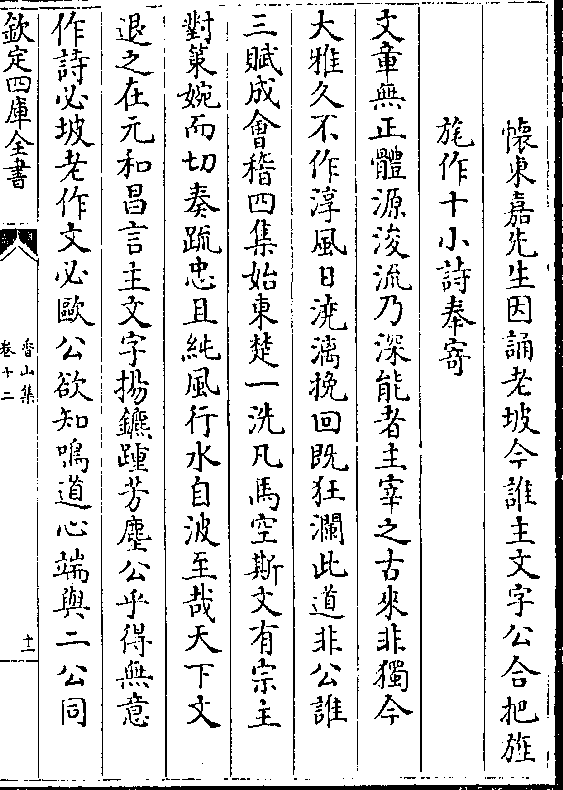 懷東嘉先生因誦老坡今誰主文字公合把旌
旄作十小詩奉寄
文章無正體源浚流乃深能者主宰之古來非獨今
大雅久不作淳風日澆漓挽回既狂瀾此道非公誰
三賦成會稽四集始東楚一洗凡馬空斯文有宗主
對策婉而切奏疏忠且純風行水自波至哉天下文
退之在元和昌言主文字揚鑣踵芳塵公乎得無意
作詩必坡老作文必歐公欲知鳴道心端與二公同
欽定四庫全書
香山集
卷十二
十一